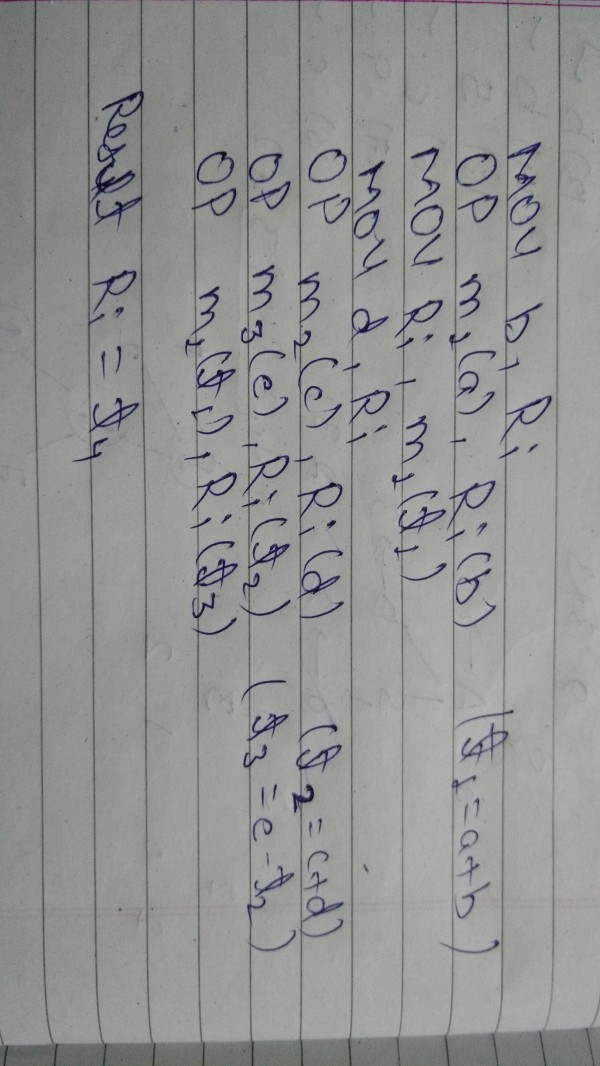 MOV b, Ri
OP m1(a), Ri(b) (t1 = a+b)
MOV Ri, m1(t1)
MOV d, Ri
OP m2(c), Ri(d) (t2 = c+d)
OP m3(e), Ri(t2) (t3 = e-t2)
OP m1(t1), Ri(t3)
Result Ri = t4